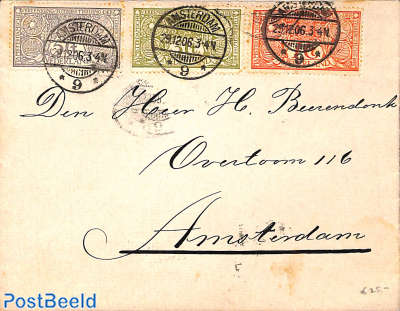 AMSTERDAM
29.12.06.3-4N
9
AMSTERDAM
29.12.06.3-4N
9
29.12.06.3-4N
9
Den Heer H. Beerendonk
Overtoom 116
Amsterdam
PostBeeld